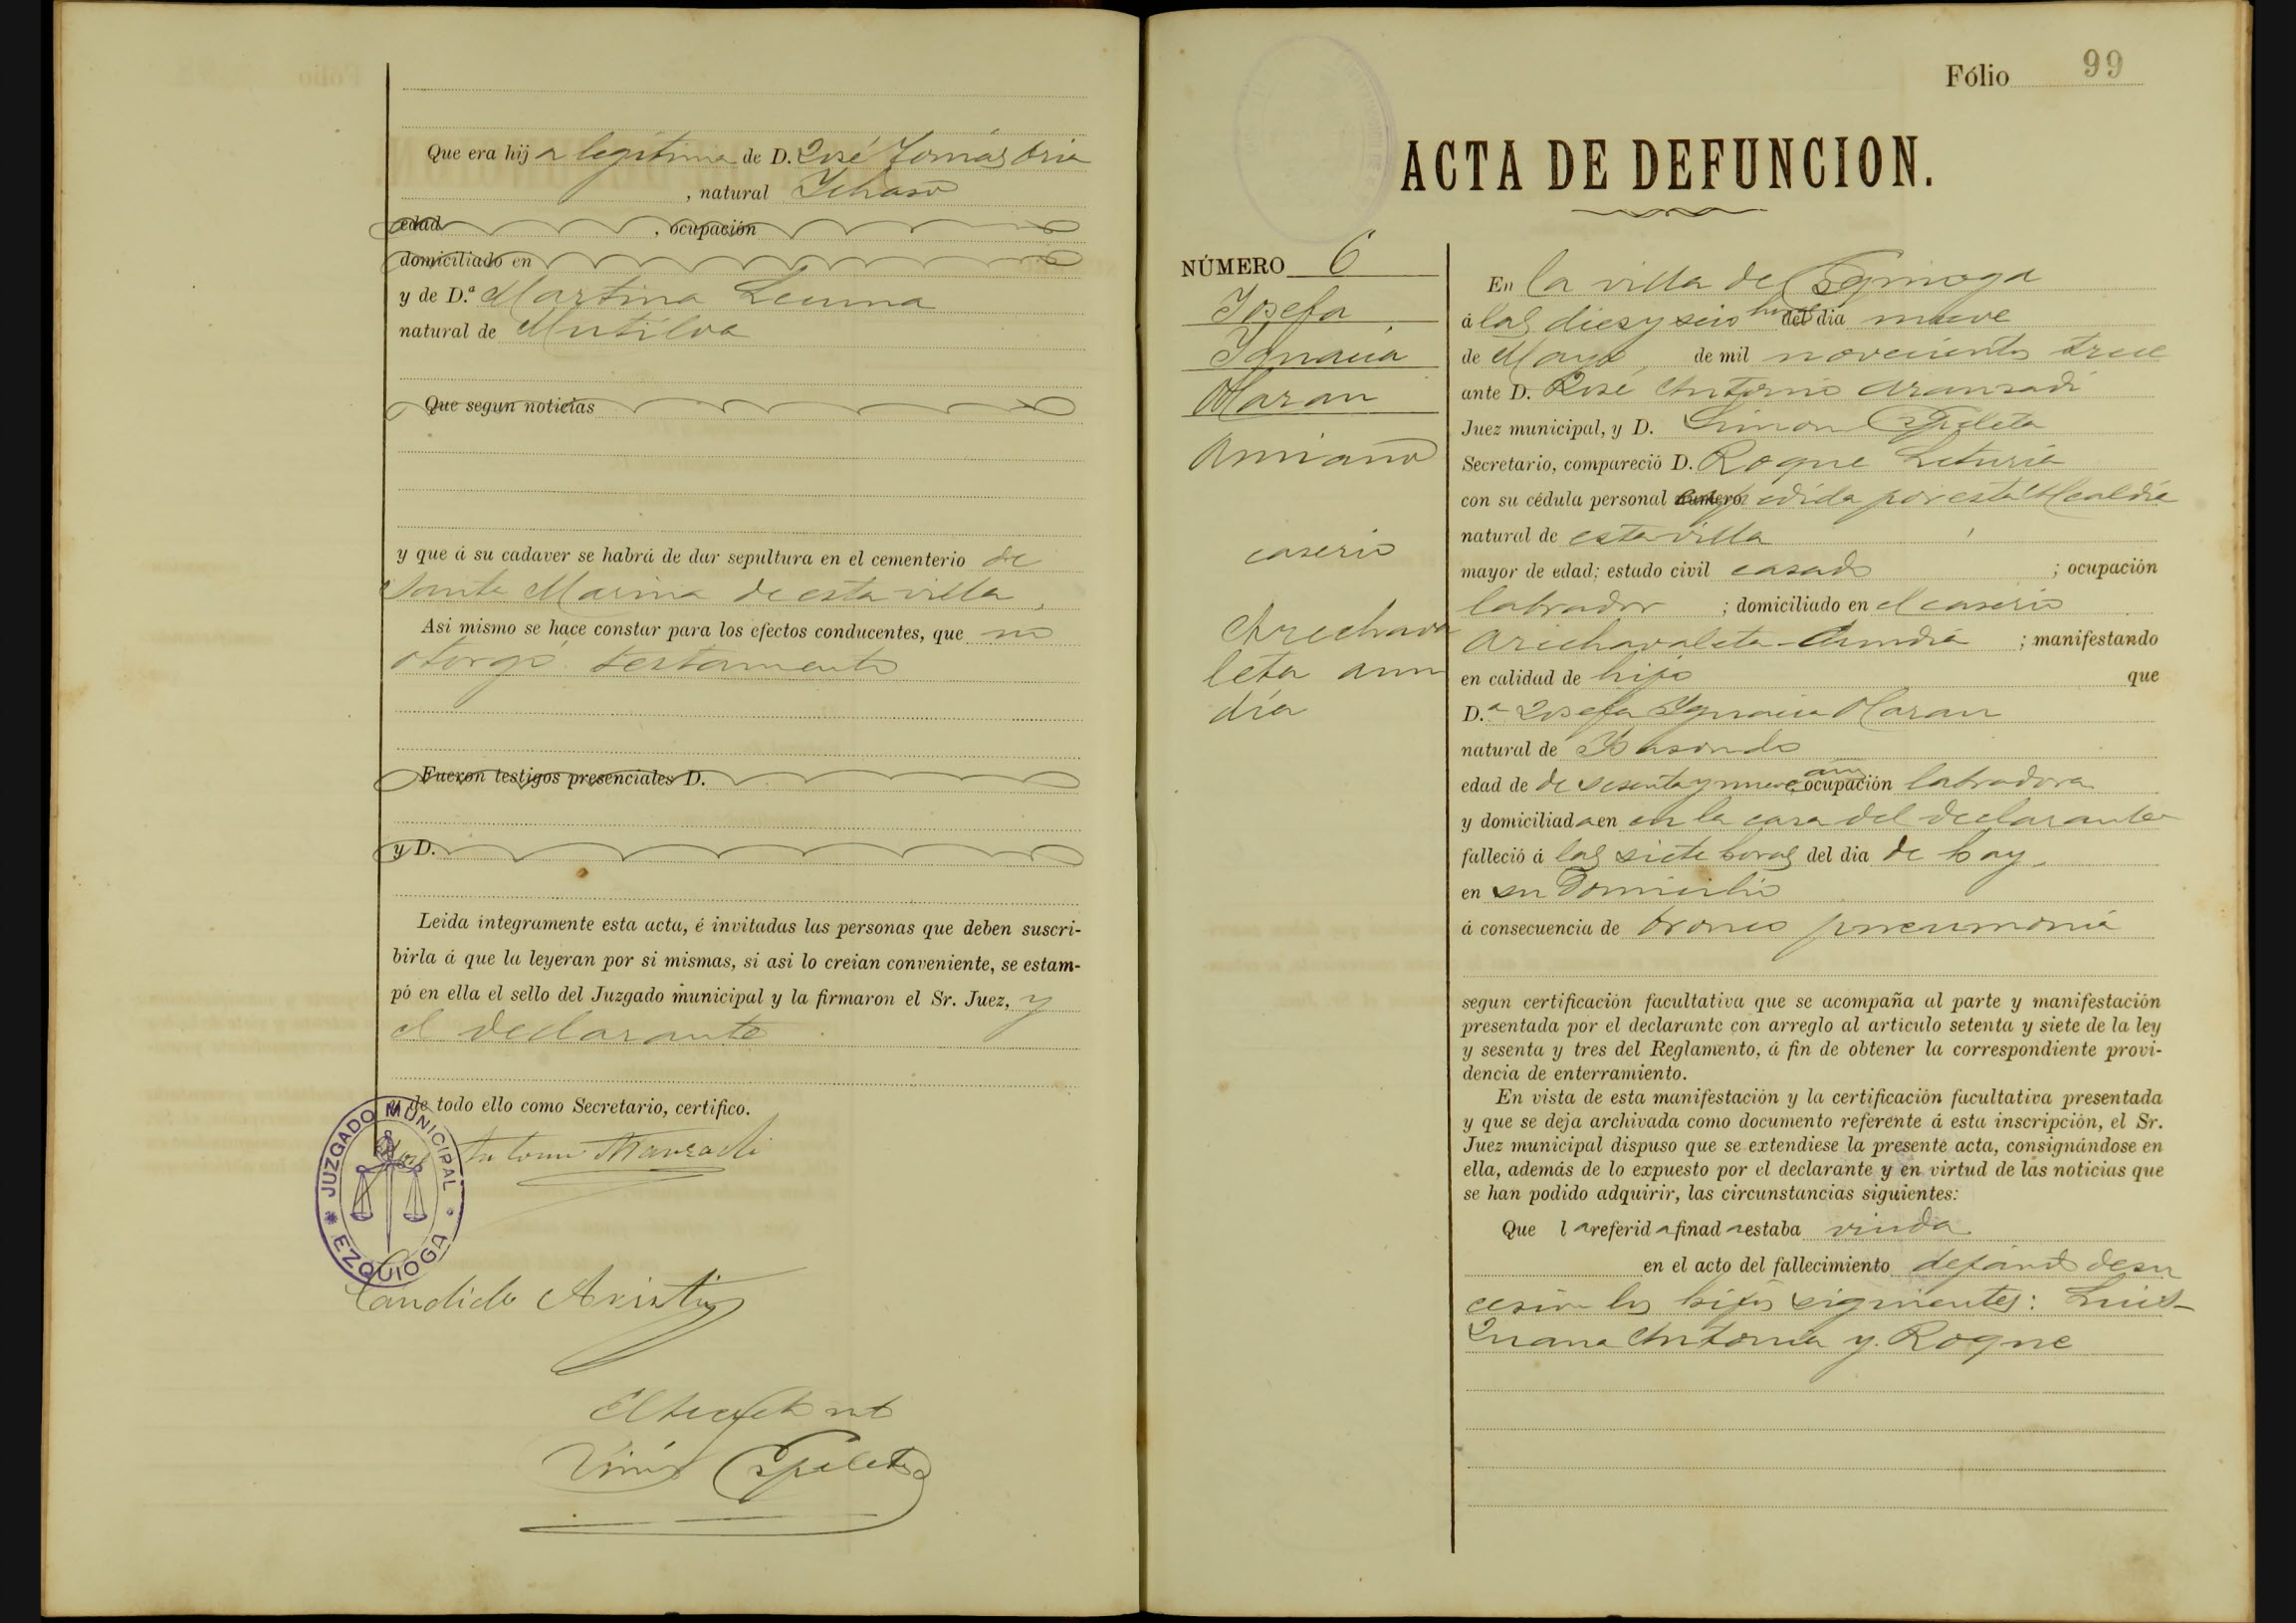 Que era hija legítima de D. José Tomás Oria
, natural Ichaso
edad , ocupación
domiciliado en
y de D.ª Martina Lecuna
natural de Mutiloa
Que segun noticias
y que á su cadaver se habrá de dar sepultura en el cementerio de
Santa Marina de esta villa.
Asi mismo se hace constar para los efectos conducentes, que no
otorgó testamento
Fueron testigos presenciales D.
y D.
Leida integramente esta acta, é invitadas las personas que deben suscri-
birla á que la leyeran por si mismas, si asi lo creian conveniente, se estam-
pó en ella el sello del Juzgado municipal y la firmaron el Sr. Juez, y
el declarante
y de todo ello como Secretario, certifico.
José Antonio Aranzadi
JUZGADO MUNICIPAL * EZQUIOGA
Candido
Simón Ezpeleta
Fólio 99
ACTA DE DEFUNCION.
NÚMERO 6
Josefa
Ignacia
Maran
caserio
Arechava
leta aun
día
En la villa de Ezquioga
á las diez y seis horas del dia nueve
de Mayo de mil novecientos trece
ante D. José Antonio Aranzadi
Juez municipal, y D. Simon Ezpeleta
Secretario, compareció D. Roque Leturia
con su cédula personal número expedida por esta Alcaldia
natural de esta villa
mayor de edad; estado civil casado ; ocupación
labrador ; domiciliado en el caserio
Arechavaleta ; manifestando
en calidad de hijo que
D.ª Josefa Ignacia Maran
natural de
edad de de sesenta y nueve años ocupación labradora
y domiciliada en en la casa del declarante
falleció á las siete horas del dia de hoy
en su domicilio
á consecuencia de bronco pneumonia
segun certificación facultativa que se acompaña al parte y manifestación
presentada por el declarante con arreglo al articulo setenta y siete de la ley
y sesenta y tres del Reglamento, á fin de obtener la correspondiente provi-
dencia de enterramiento.
En vista de esta manifestación y la certificación facultativa presentada
y que se deja archivada como documento referente á esta inscripción, el Sr.
Juez municipal dispuso que se extendiese la presente acta, consignándose en
ella, además de lo expuesto por el declarante y en virtud de las noticias que
se han podido adquirir, las circunstancias siguientes:
Que la referida finada estaba viuda
en el acto del fallecimiento dejando de su
cesion los hijos siguientes: Luis-
Juana Antonia y Roque